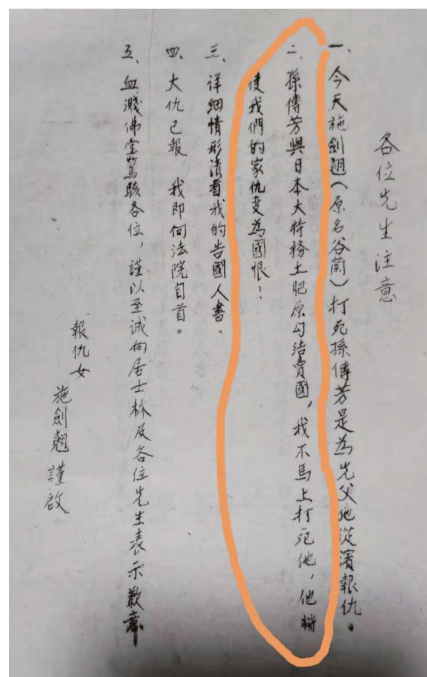 各位先生注意
一、今天施劍翹(原名谷蘭)打死孫傳芳是為先父施從濱報仇。
二、孫傳芳與日本大特務土肥原勾结賣國,我不馬上打死他,他將
使我們的家仇变為國恨!
三、详细情形請看我的告國人書。
四、大仇已報 我即向法院自首。
五、血濺佛堂驚駭各位,謹以至诚向居士林及各位先生表示歉意
報仇女
施劍翹 謹啟